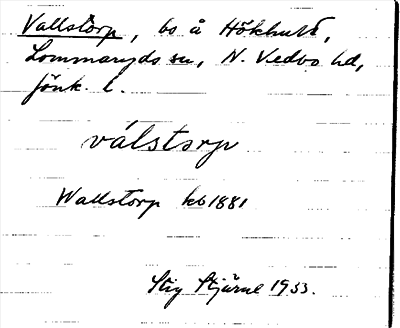 Vallstorp, bo å Hökhult,
Lommaryds sn, N. Vedbo hd,
Jönk. l.
válstorp
Wallstorp kb 1881
Stig Stjärne 1933.